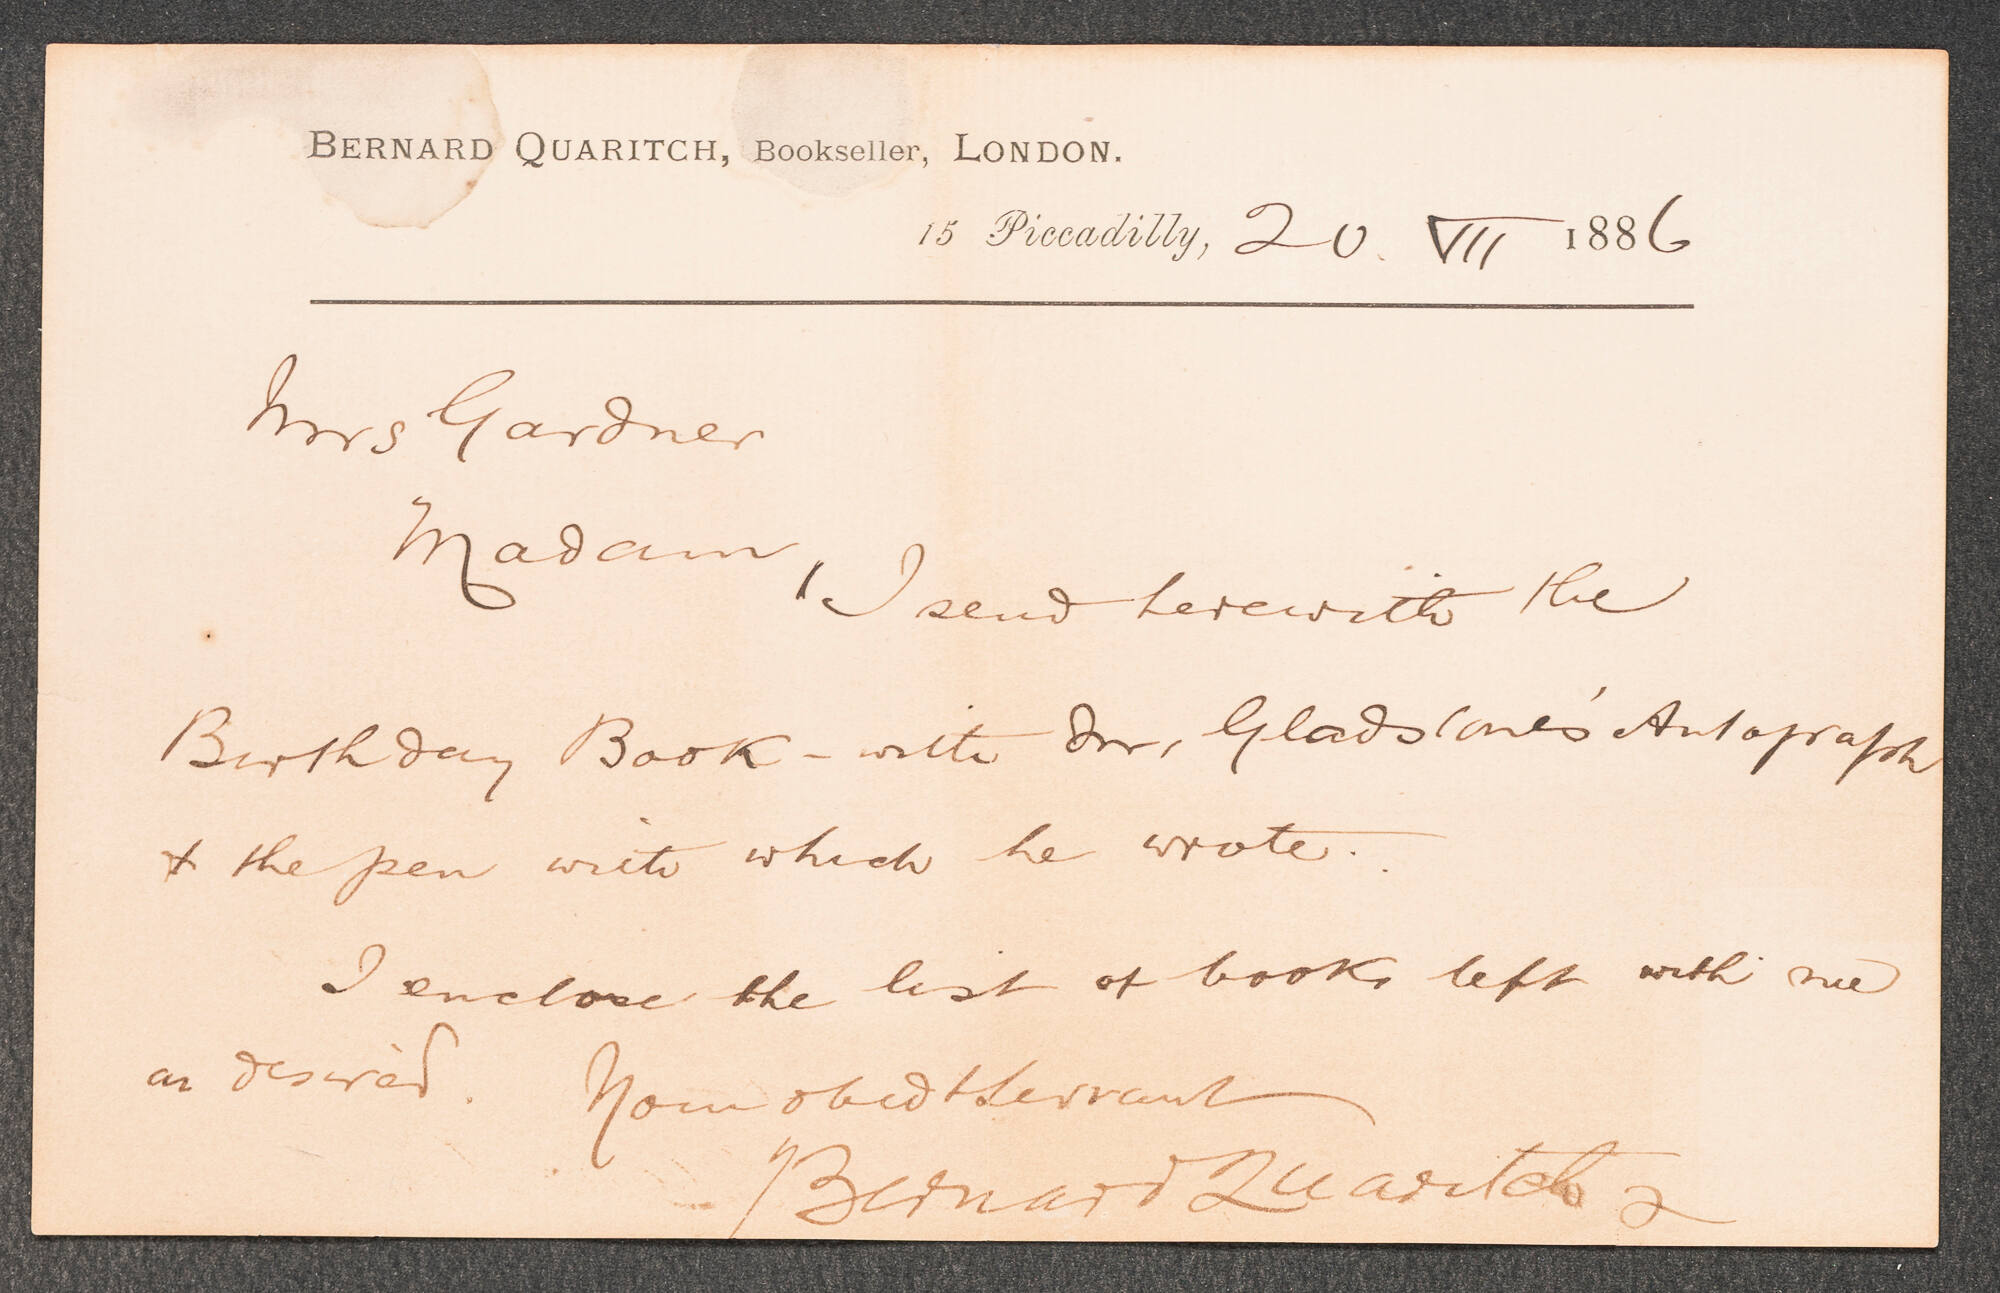 BERNARD QUARITCH, Bookseller, LONDON.
15 Piccadilly, 20. VII 1886
Mrs Gardner
Madam, I send herewith the
Birthday Book – with Mr, Gladstone's Autograph
& the pen with which he wrote.
I enclose the list of books left with me
as desired. Your obedt Servant
Bernard Quaritch